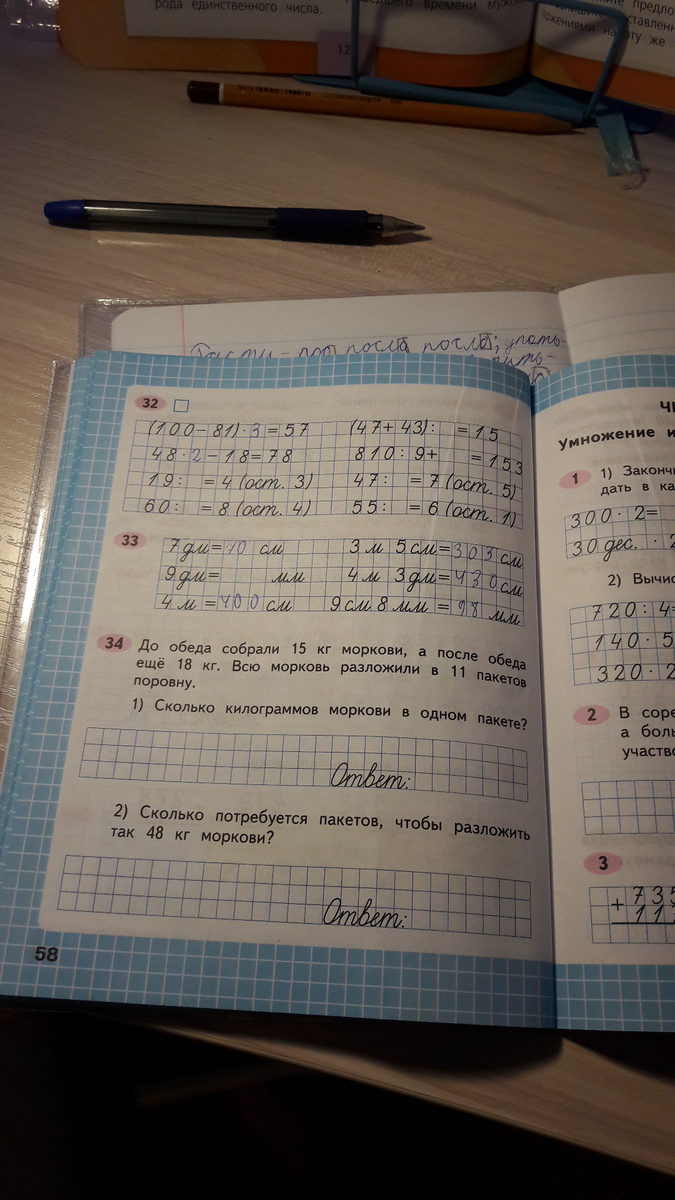 рода единственного числа.
12
32
(100−81)·3=57 (47+43): =15
48·2−18=78 810:9+ =153
19: =4 (ост. 3) 47: =7 (ост. 5)
60: =8 (ост. 4) 55: =6 (ост. 1)
33
7 дм=70 см 3 м 5 см=305 см
9 дм= мм 4 м 3 дм=430 см
4 м =400 см 9 см 8 мм =98 мм
34 До обеда собрали 15 кг моркови, а после обеда
ещё 18 кг. Всю морковь разложили в 11 пакетов
поровну.
1) Сколько килограммов моркови в одном пакете?
Ответ:
2) Сколько потребуется пакетов, чтобы разложить
так 48 кг моркови?
Ответ:
58
Умножение и
1 1) Законч
дать в ка
300· 2=
30 дес. · 2
2) Вычис
720:4=
140·5
320·2
2 В соре
а боль
участво
3
+ 735
11